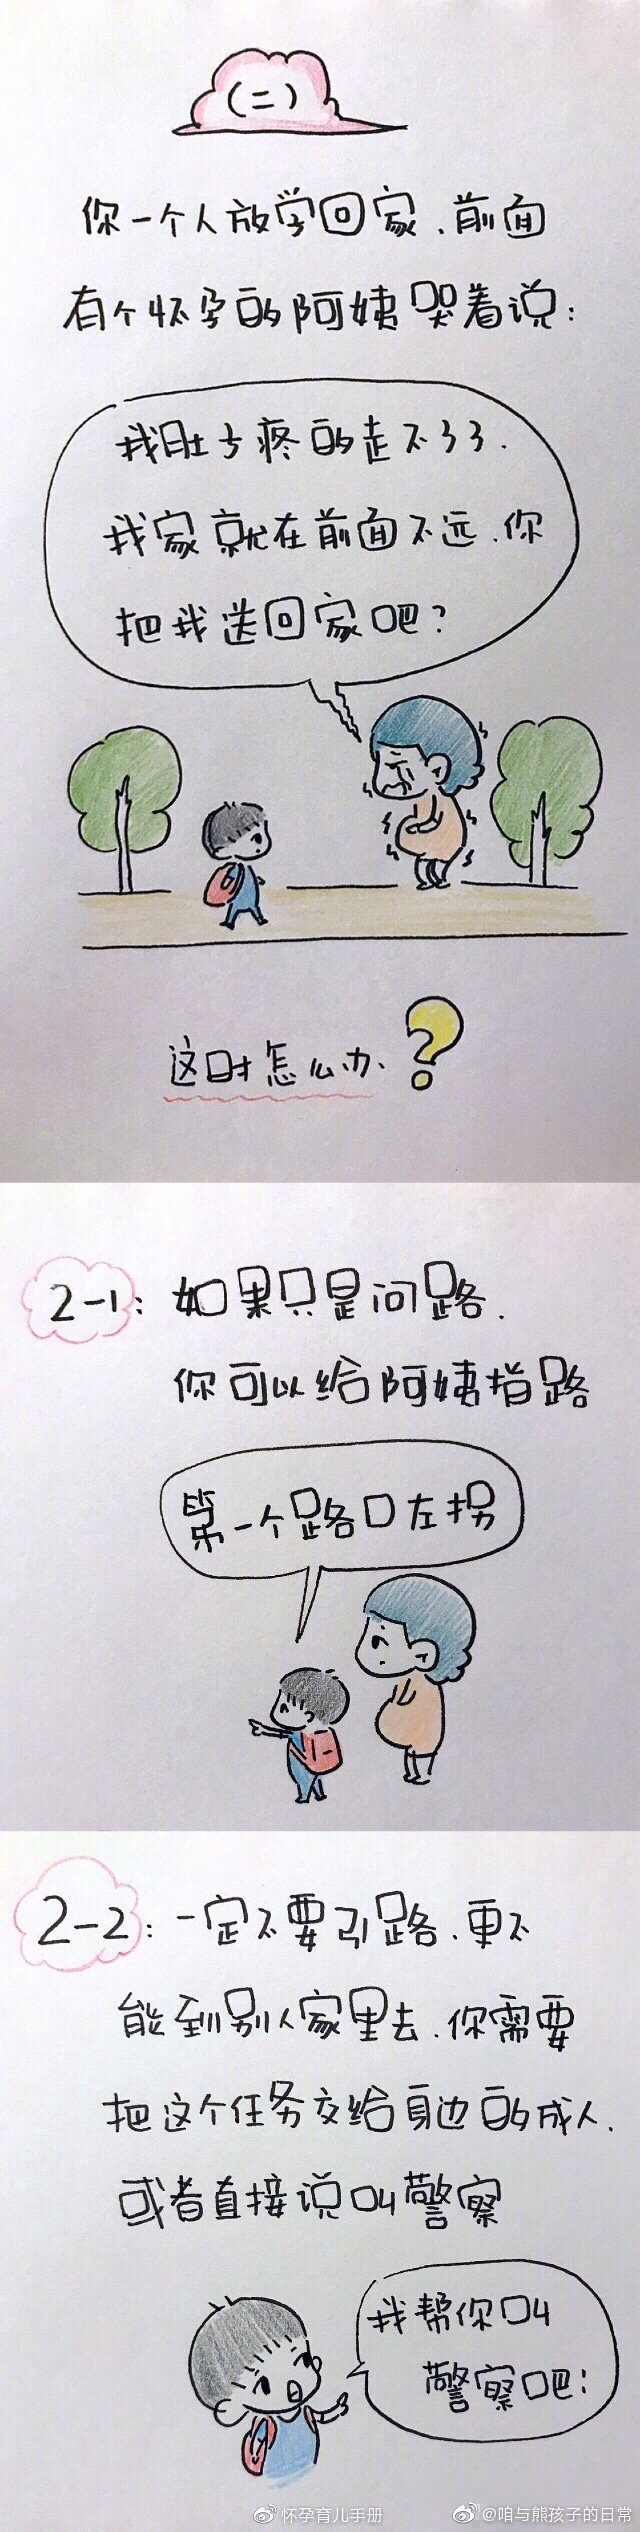 （二）
你一个人放学回家、前面
有个怀孕的阿姨哭着说：
我肚子疼的走不了了.
我家就在前面不远、你
把我送回家吧？
这时怎么办、?
2-1：如果只是问路.
你可以给阿姨指路
第一个路口左拐
2-2：一定不要引路、更不
能到别人家里去、你需要
把这个任务交给身边的成人、
或者直接说叫警察
我帮你叫
警察吧！
怀孕育儿手册
@咱与熊孩子的日常